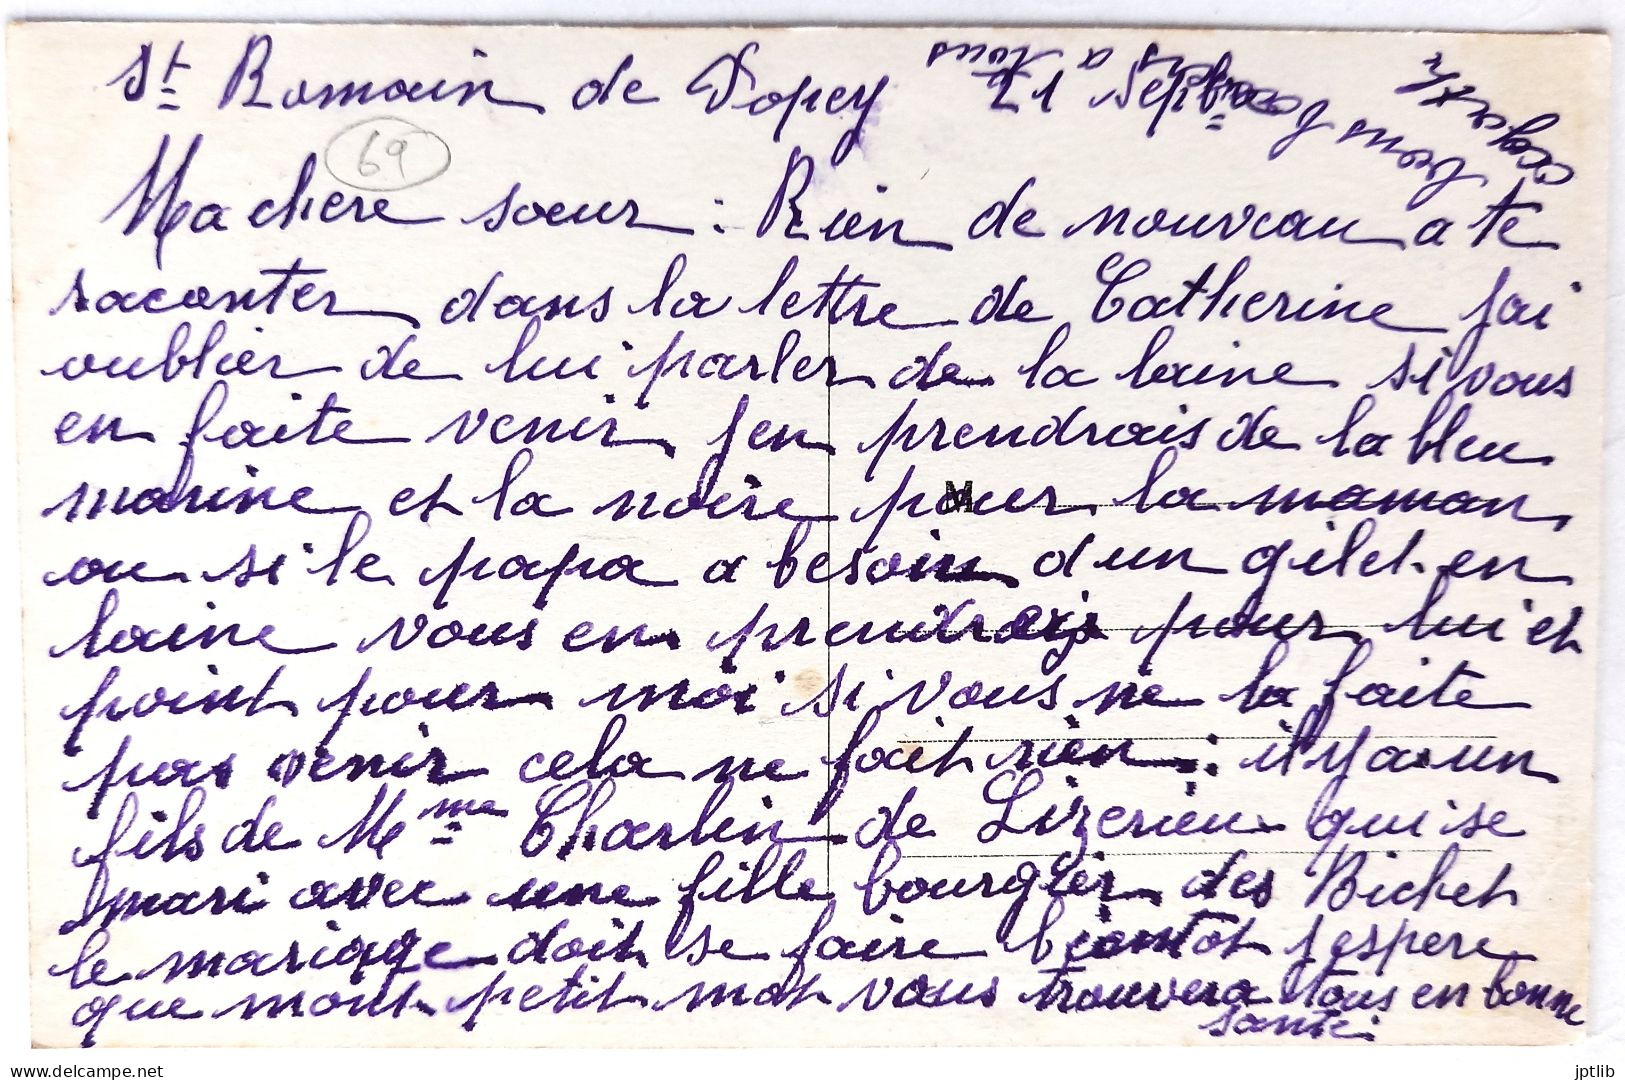 St Romain de Popey 21 Sepbre
69
Ma chere soeur : Rien de nouveau a te
raconter dans la lettre de Catherine jai
oublier de lui parler de la laine si vous
en faite venir jen prendrais de la bleu
marine et la noire pour la maman
ou si le papa a besoin dun gilet en
laine vous en prendrais pour lui et
point pour moi si vous ne la faite
pas venir cela ne fait rien : il y a un
fils de Mme Charlin de Lizerieu qui se
mari avec une fille bourgier des Bichet
le mariage doit se faire bientôt jespere
que mont petit mot vous trouvera tous en bonne
santé.
M
jptlib